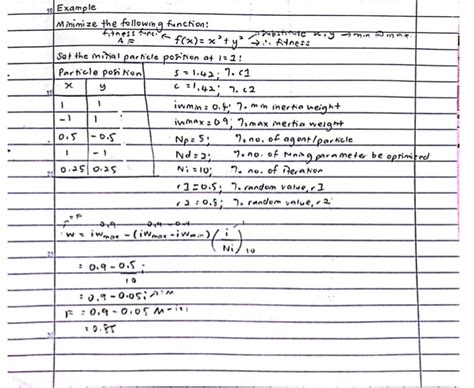 Example
Minimize the following function:
fitness func. f(x) = x² + y² substitute x, y → min @ max
∴ fitness
Set the initial particle position at i=1:
Particle position s = 1.42; % c1
x y c = 1.42; % c2
1 1 iwmin = 0.4; % min inertia weight
-1 1 iwmax = 0.9; % max inertia weight
0.5 -0.5 Np = 5; % no. of agent/particle
1 -1 Nd = 2; % no. of tuning parameter be optimized
0.25 0.25 Ni = 10; % no. of iteration
r1 = 0.5; % random value, r1
r2 = 0.8; % random value, r2
0.9 0.9-0.4
w = iwmax - (iwmax - iwmin) (i/Ni) 10
= 0.9 - 0.5 i
10
= 0.9 - 0.05 i
= 0.9 - 0.05
= 0.85